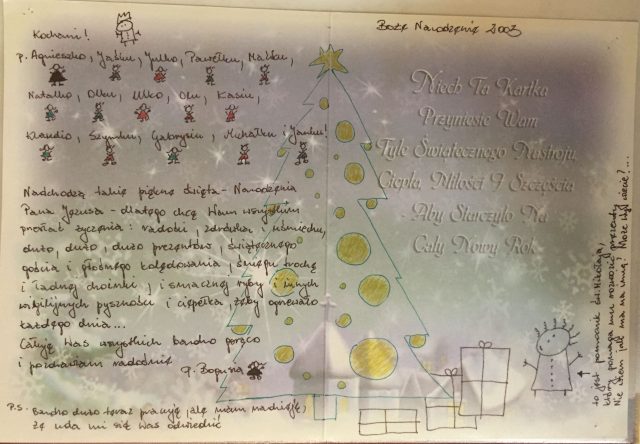 Boże Narodzenie 2003
Kochani!
p. Agnieszko, Jaśku, Julko, Pawełku, Maćku,
Natalko, Olku, Ulko, Olu, Kasiu,
Klaudio, Szymku, Gabrysiu, Michałku i Janku!
Nadchodzą takie piękne święta - Narodzenia
Pana Jezusa - dlatego chcę Wam wszystkim
przesłać życzenia: radości, zdrówka i uśmiechu,
dużo, dużo, dużo prezentów, świątecznego
gościa i głośnego kolędowania, śniegu trochę
i ładnej choinki, i smacznej ryby i innych
wigilijnych pyszności i ciepełka, żeby ogrzewało
każdego dnia...
Całuję Was wszystkich bardzo gorąco
i pozdrawiam radośnie
P.S. Bardzo dużo teraz pracuję, ale mam nadzieję,
że uda mi się Was odwiedzić
Niech Ta Kartka
Przyniesie Wam
Tyle Świątecznego Nastroju,
Ciepła, Miłości I Szczęścia
- Aby Starczyło Na
Cały Nowy Rok -
to jest pomocnik św. Mikołaja,
który pomaga mu roznosić prezenty
Nie wiem jak ma na imię? Może Wy wiecie?...